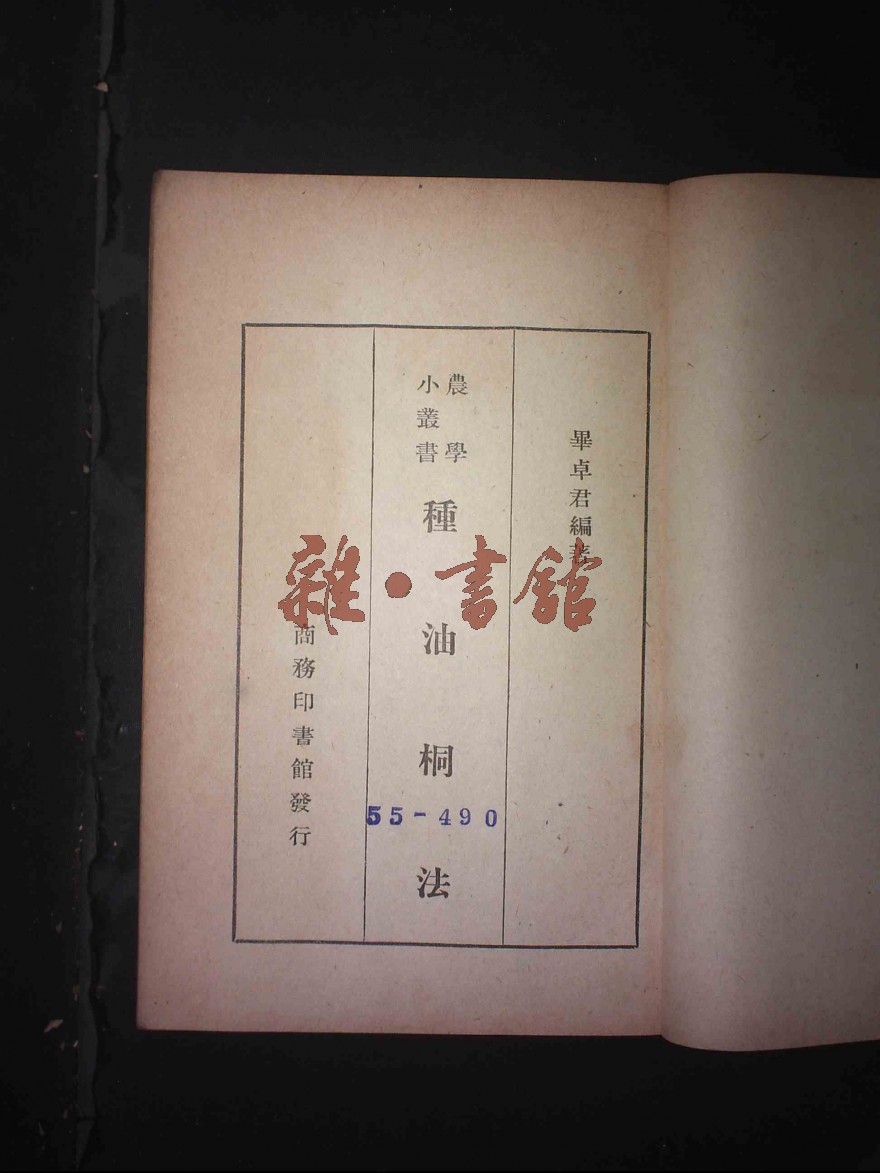 畢卓君編著
農學
小叢書
種油桐法
55-490
商務印書館發行
雜·書館